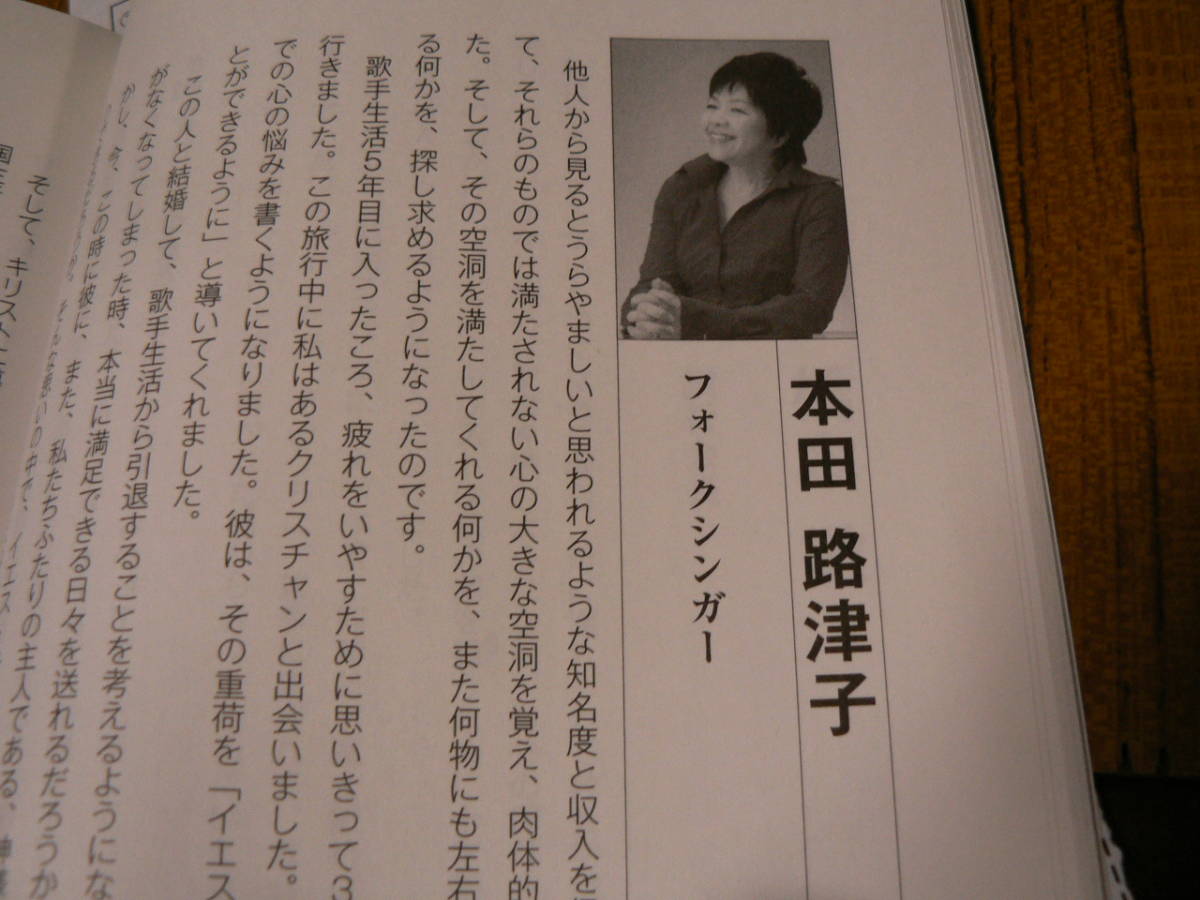 本田 路津子
フォークシンガー
他人から見るとうらやましいと思われるような知名度と収入を
て、それらのものでは満たされない心の大きな空洞を覚え、肉体的
た。そして、その空洞を満たしてくれる何かを、また何物にも左右
る何かを、探し求めるようになったのです。
歌手生活5年目に入ったころ、疲れをいやすために思いきって3
行きました。この旅行中に私はあるクリスチャンと出会いました。
での心の悩みを書くようになりました。彼は、その重荷を「イエス
とができるように」と導いてくれました。
この人と結婚して、歌手生活から引退することを考えるようにな
がなくなってしまった時、本当に満足できる日々を送れるだろうか
かし、今、この時に彼に、また、私たちふたりの主人である、神様
そんな思いの中で、イエス
そして、キリスト